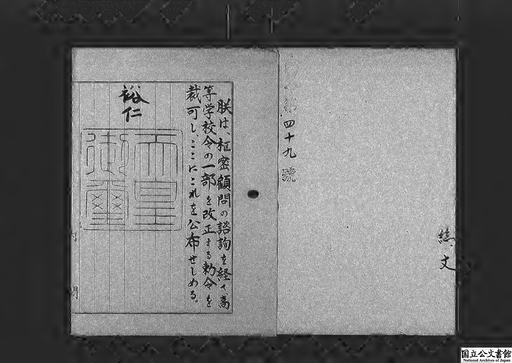 四十九號
朕は、枢密顧問の諮詢を経て、高
等学校令の一部を改正する勅令を
裁可し、ここにこれを公布せしめる。
裕仁
天皇
御璽
国立公文書館
National Archives of Japan